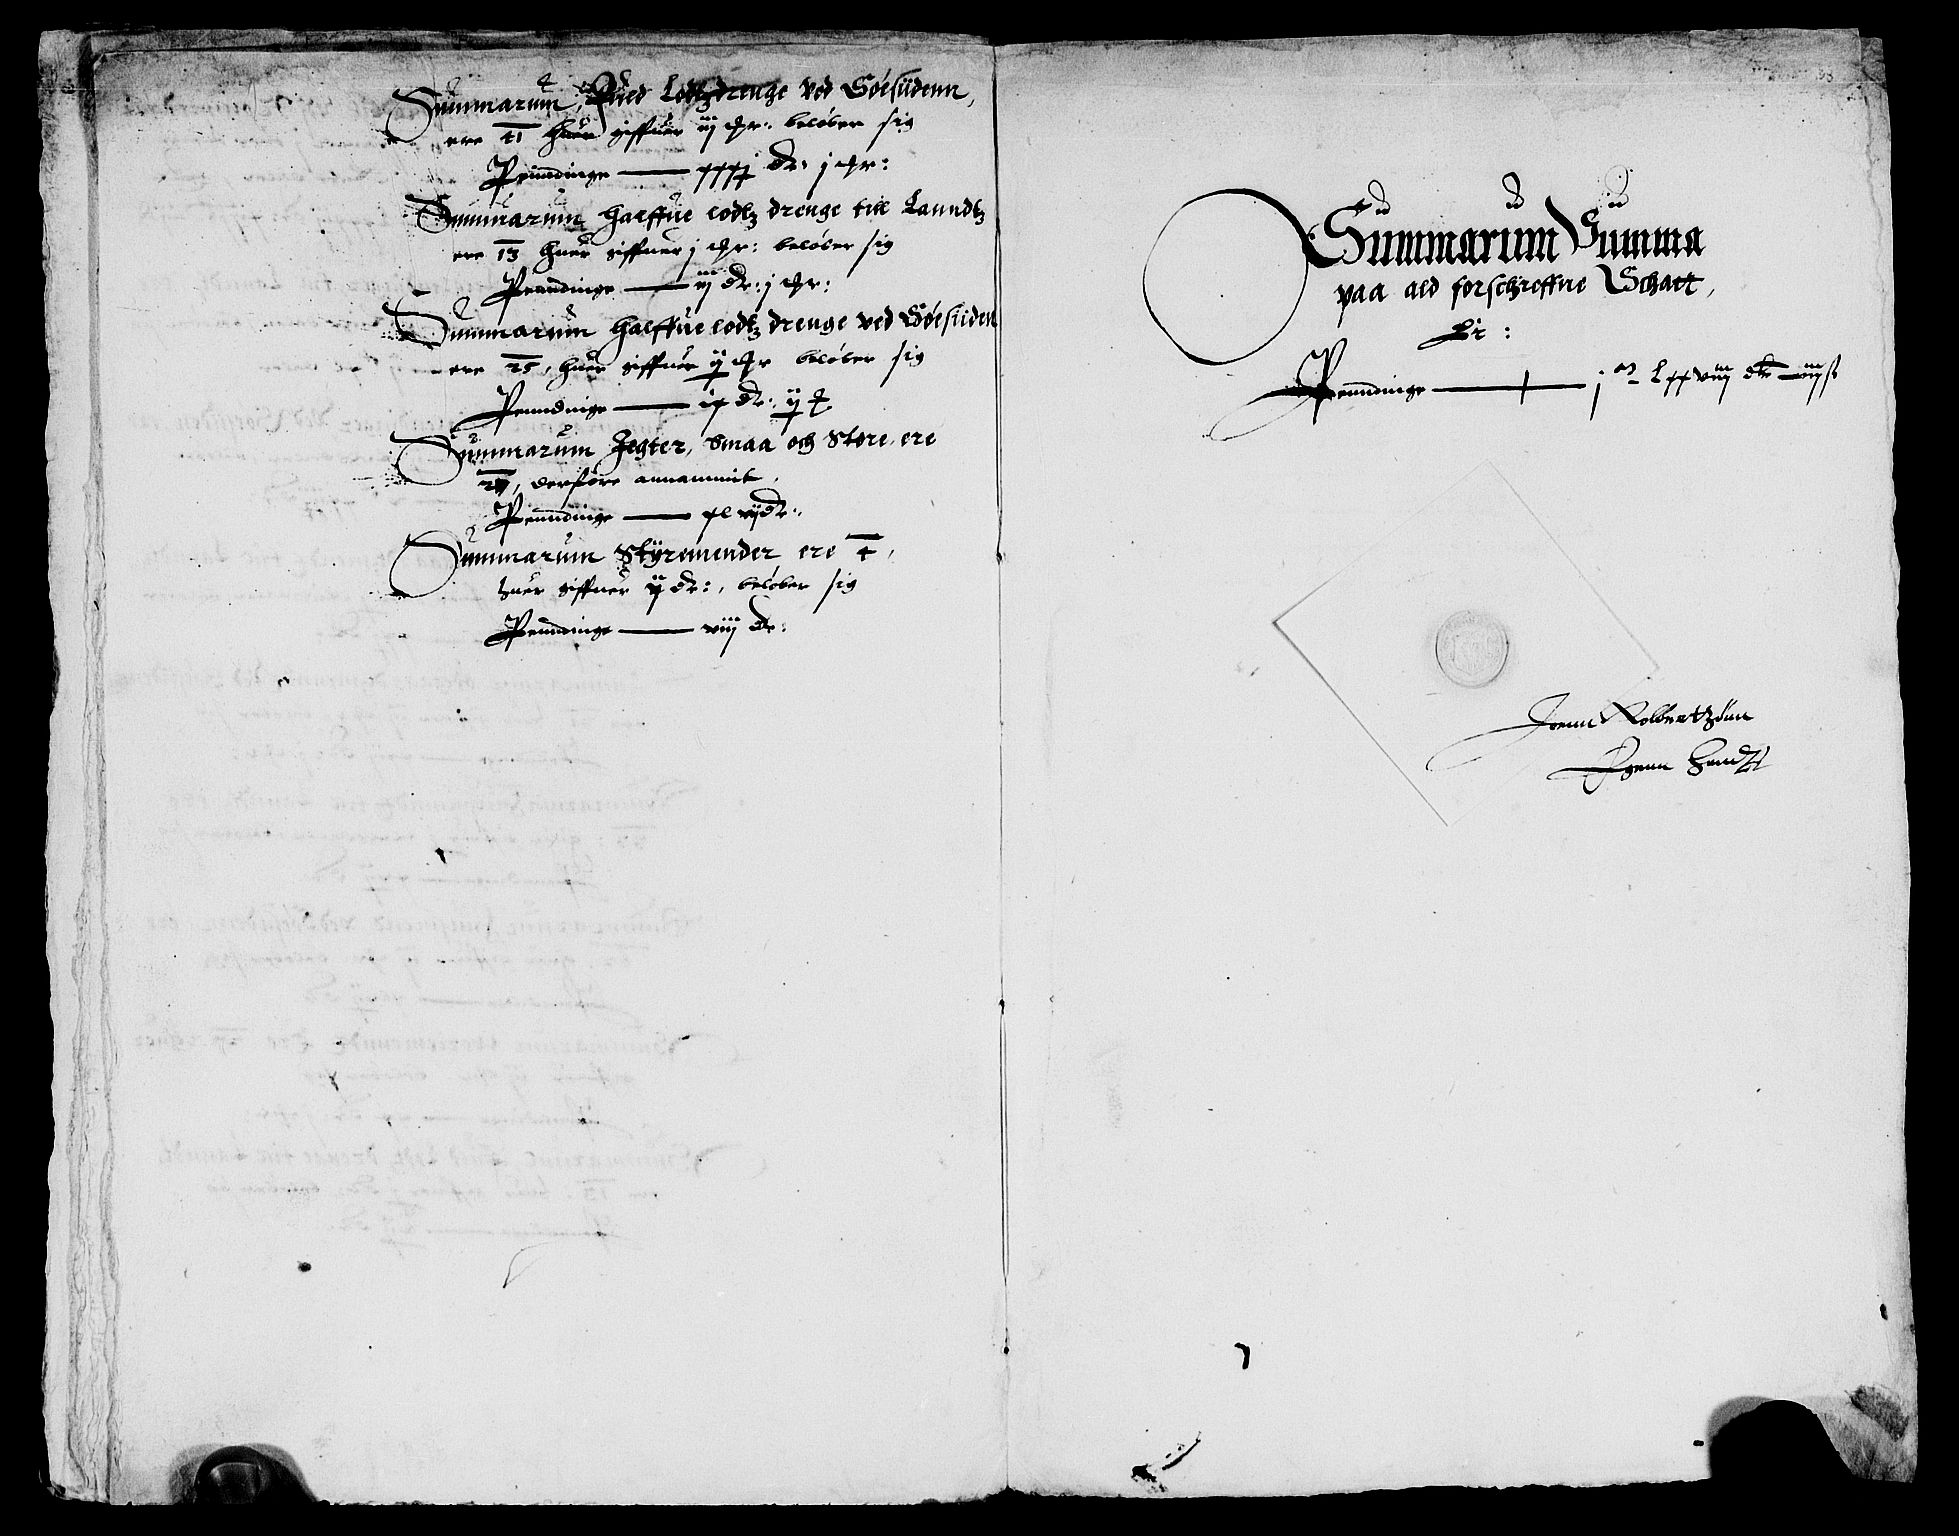 Summarum, Fuld Lodtzdrenge ved Söesiidenn,
ere 41 huer giffuer iij ꝗr: belöber sig
Penndinge —— xxxj dr: j ꝗr:
Summarum halffue lodtz drenge till Lanndtz
ere 13 huer giffuer j ꝗr: belöber sig
Penndinge —— iij dr: j ꝗr:
Summarum halffue lodtz drenge ved Söesiiden
ere 25, huer giffuer ij ꝗr belöber sig
Penndinge —— ix dr:
Summarum Jegter, smaa och Store, ere
derfore annammit,
Penndinge —— dr:
Summarum Styremender ere 4,
huer giffuer ij dr:, belöber sig
Penndinge —— viij dr:
Summarum Summa
paa ald forschreffne Schatt,
Er:
Penndinge —— j Lxxviij dr
Joenn Rolbertzönn
Egenn Handt